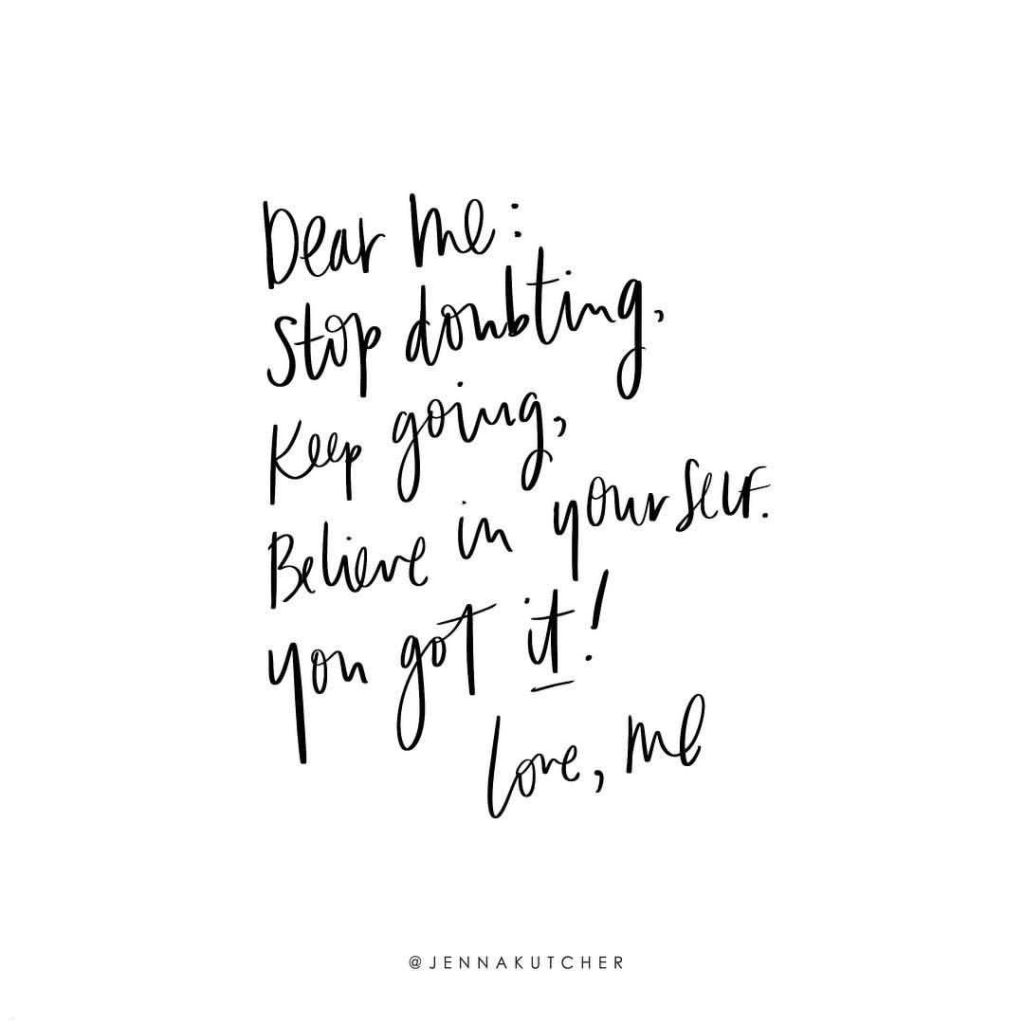 Dear Me:
Stop doubting,
Keep going,
Believe in yourself.
you got it!
Love, Me
@JENNAKUTCHER